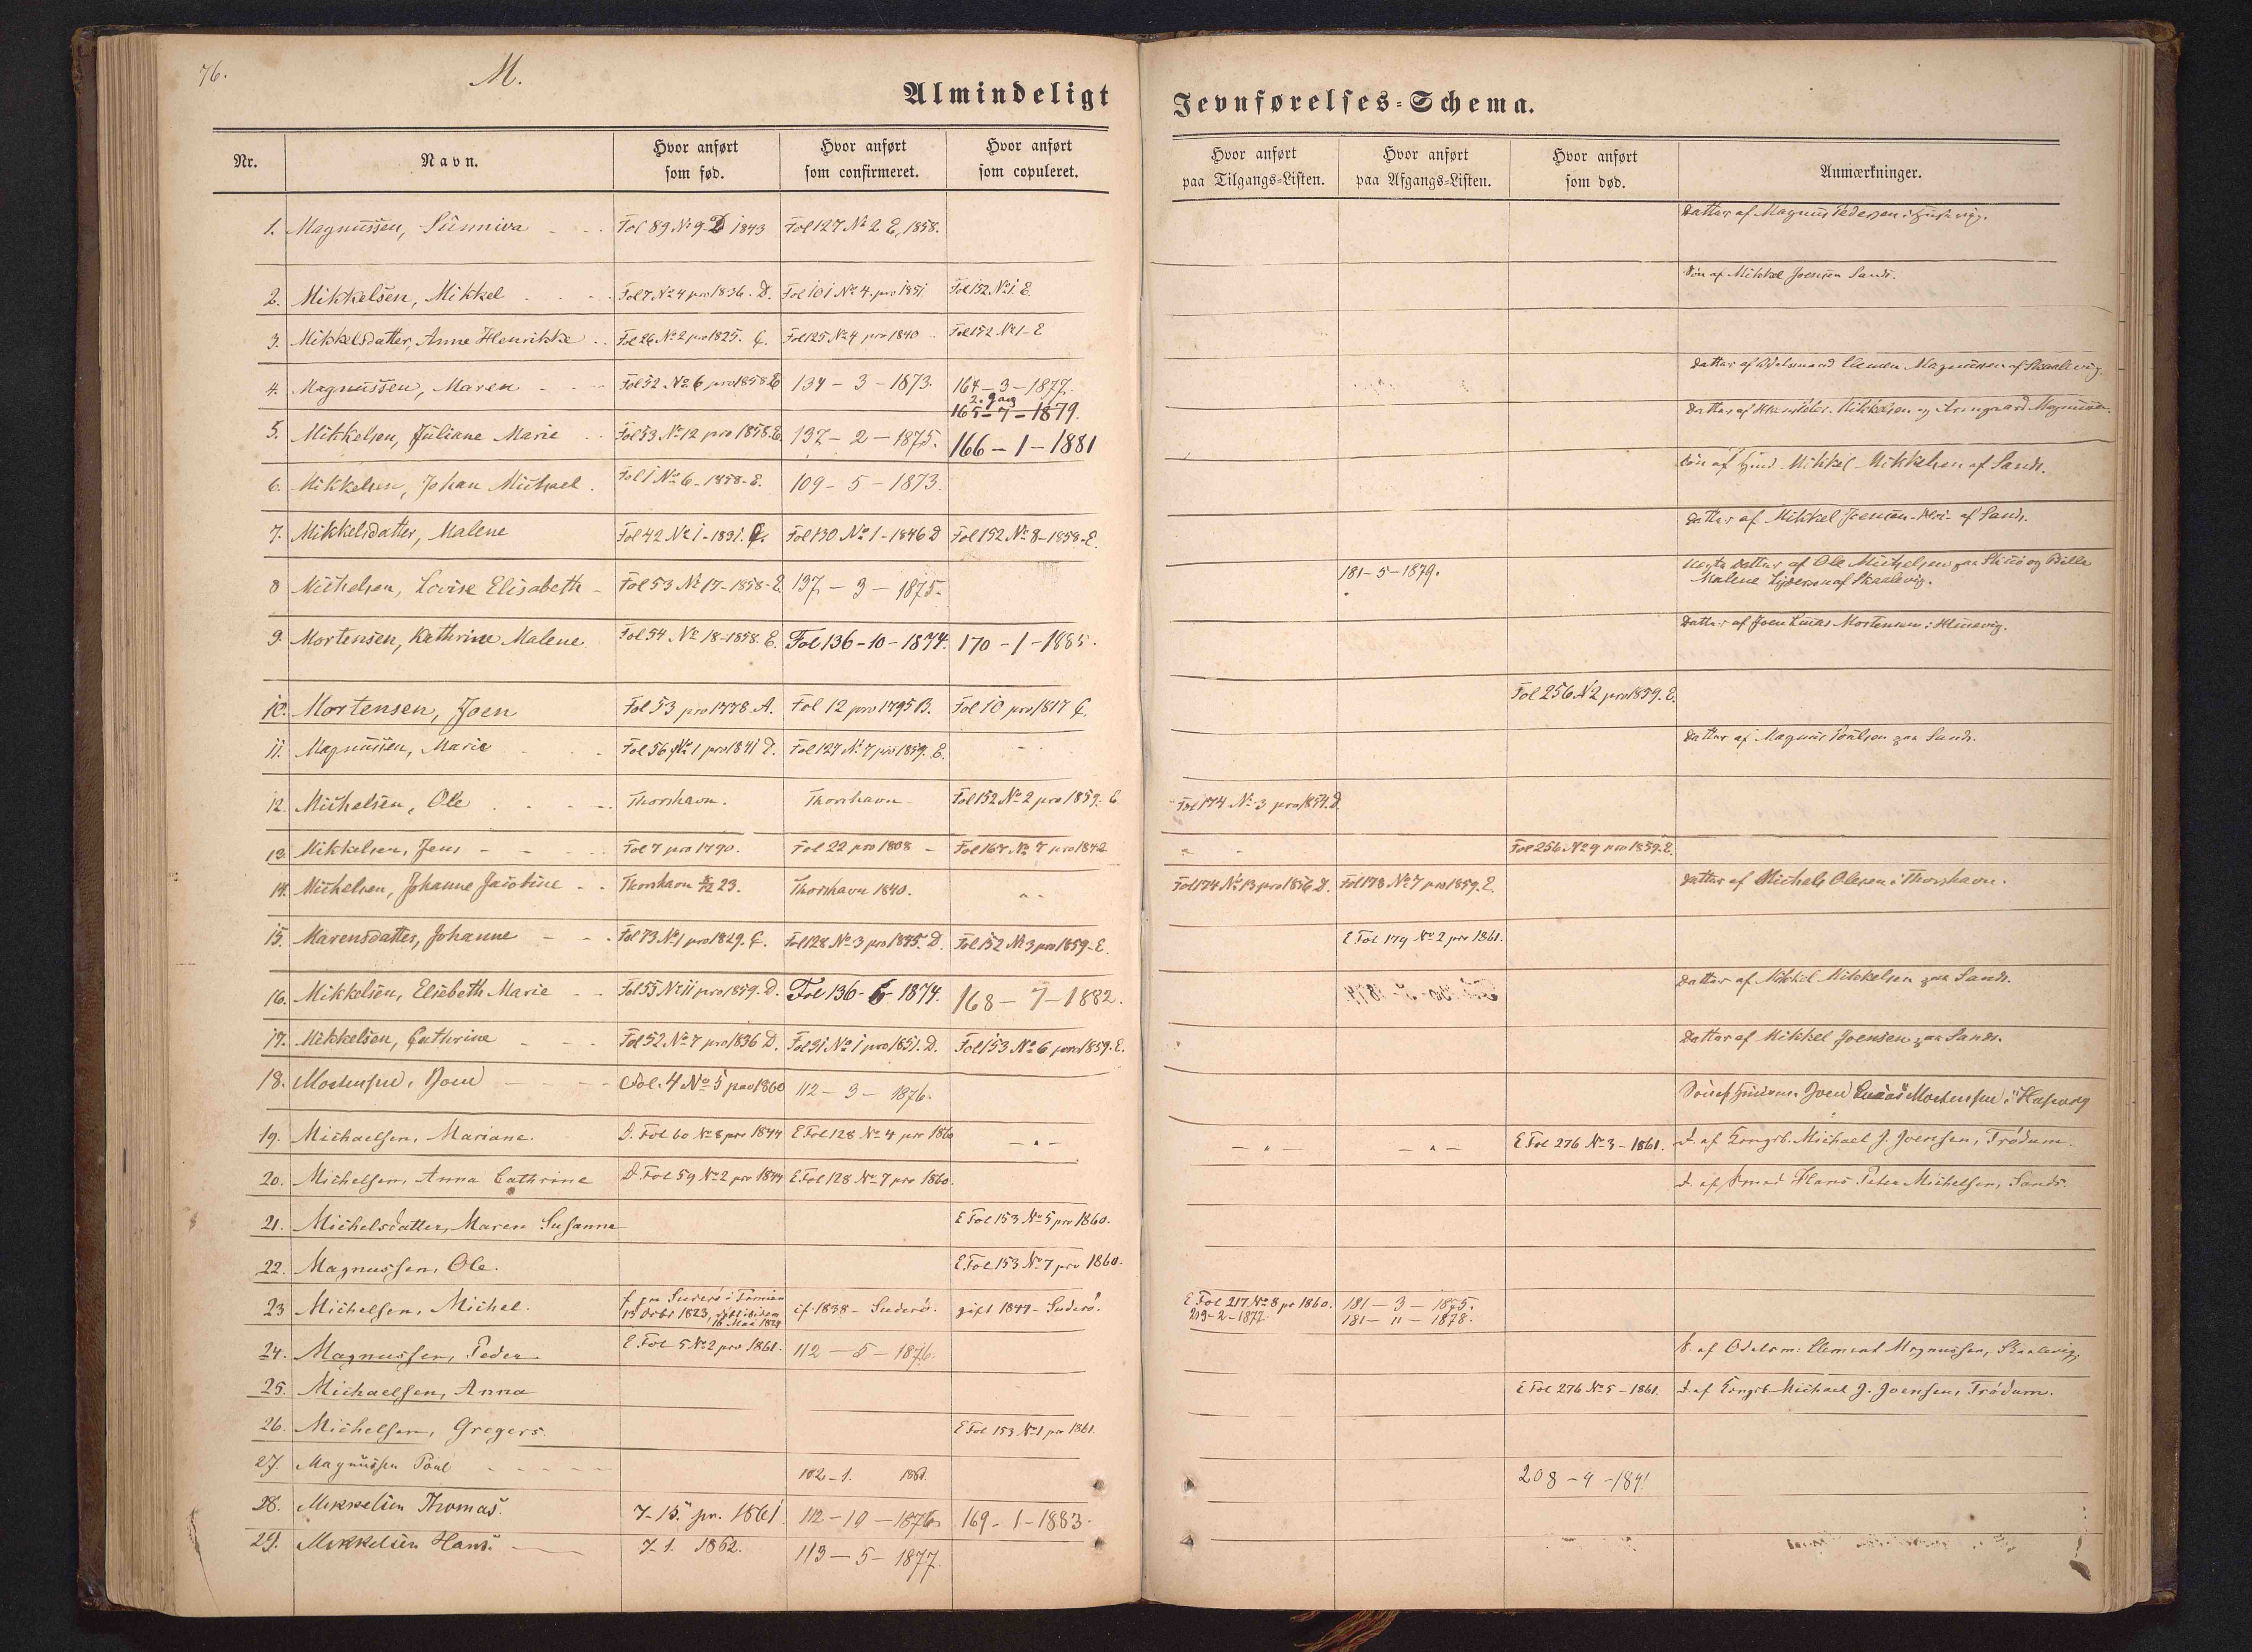 76.
M.
Almindeligt Jevnførelses-Schema.
Nr. Navn. Hvor anført som fød. Hvor anført som confirmeret. Hvor anført som copuleret. Hvor anført paa Tilgangs-Listen. Hvor anført paa Afgangs-Listen. Hvor anført som død. Anmærkninger.
1. Magnussen, Sunniva Fol 89 No 9 D 1843 Fol 127 No 2 E, 1858. Datter af Magnus Pedersen i Husevig.
2. Mikkelsen, Mikkel Fol 7 No 4 pro 1836. D. Fol 101 No 4. pro 1851. Fol 152. No 1. E Søn af Mikkel Joensen Sand.
3. Mikkelsdatter, Anne Henrikke Fol 26 No 2 pro 1825. C. Fol 125 No 4 pro 1840 Fol 152 No 1 - E
4. Magnussen, Maren Fol 52 No 6 pro 1858 E 134 - 3 - 1873. 164 - 3 - 1877. 2. Gang 165 - 7 - 1879. Datter af Odelsmand Clemen Magnussen af Skaalevig.
5. Mikkelsen, Juliane Marie Fol 53 No 12 pro 1858. E. 137 - 2 - 1875. 166 - 1 - 1881 Datter af Mikkelsen og Magnussen.
6. Mikkelsen, Johan Michael. Fol 1 No 6 - 1858 - E. 109 - 5 - 1873. Søn af Mikkel Mikkelsen af Sand.
7. Mikkelsdatter, Malene Fol 42 No 1 - 1831. C. Fol 130 No 1 - 1846 D Fol 152 No 8 - 1858 - E. Datter af Mikkel Joensen af Sand.
8 Michelsen, Lovise Elisabeth - Fol 53 No 17 - 1858 - E. 137 - 3 - 1875. 181 - 5 - 1879. Uægte Datter af Ole Michelsen paa og Bille Malene af Skaalevig.
9. Mortensen, Kathrine Malene Fol 54 No 18 - 1858. E. Fol 136 - 10 - 1874. 170 - 1 - 1885. Datter af Joen Lucas Mortensen i Husevig.
10. Mortensen, Joen Fol 53 pro 1778. A. Fol 12 pro 1795 B. Fol 10 pro 1817 C. Fol 256 No 2 pro 1859. E.
11. Magnussen, Marie Fol 56 No 1 pro 1841 D. Fol 127 No 7 pro 1859. E. Datter af Magnus Poulsen paa Sand.
12. Michelsen, Ole Thorshavn. Thorshavn Fol 152 No 2 pro 1859. E Fol 174 No 3 pro 1854. D.
13 Mikkelsen, Jens Fol 7 pro 1790. Fol 22 pro 1808 - Fol 167 No 7 pro 1842 Fol 256 No 9 pro 1859. E.
14. Michelsen, Johanne Jacobine Thorshavn 23. Thorshavn 1840. Fol 174 No 13 pro 1856. D. Fol 178 No 7 pro 1859. E. Datter af Michels Olesen i Thorshavn.
15. Marensdatter, Johanne Fol 73 No 1 pro 1829. C. Fol 128 No 3 pro 1845. D. Fol 152 No 3 pro 1859 - E. E Fol 179 No 2 pro 1861.
16. Mikkelsen, Elsebeth Marie Fol 55 No 11 pro 1859. D. Fol 136 - 6 - 1874. 168 - 7 - 1882. Datter af Mikkel Mikkelsen paa Sand.
17. Mikkelsen, Cathrine Fol 52 No 7 pro 1836 D. Fol 31 No 1 pro 1851. D. Fol 153 No 6 pro 1859. E. Datter af Mikkel Joensen paa Sand.
18. Mortensen, Joen Fol. 4 No 5 pro 1860 112 - 3 - 1876. Søn af Joen Lucas Mortensen i Husevig
19. Michaelsen, Mariane. D. Fol 60 No 8 pro 1844 E Fol 128 No 4 pro 1860 E Fol 276 No 3 - 1861. D. af Kongsb. Michael J. Joensen, Trødum.
20. Michelsen, Anna Cathrine D. Fol 59 No 2 pro 1844 E. Fol 128 No 7 pro 1860. D. af Hans Peter Michelsen, Sand.
21. Michelsdatter, Maren Susanne E Fol 153 No 5 pro 1860.
22. Magnussen, Ole. E. Fol 153 No 7 pro 1860.
23 Michelsen, Michel. f. paa Suderø i Famien 13 Octbr 1823, 16 Mai 1824 cf. 1838 - Suderø. gift 1847 - Suderø. E Fol 217 No 8 pr 1860. 219 - 2 - 1877. 181 - 3 - 1875. 181 - 11 - 1878.
24. Magnussen, Peder E. Fol 5 No 2 pro 1861. 112 - 5 - 1876. S. af Odelsm: Clement Magnussen, Skaalevig.
25. Michaelsen, Anna E Fol 276 No 5 - 1861. D. af Kongsb. Michael J. Joensen, Trødum.
26. Michelsen, Gregers. E Fol 153 No 1 pro 1861.
27. Magnussen Poul 102 - 1. 208 - 4 - 1891
28. Mikkelsen Thomas. 7 - 15. pr. 1861 112 - 10 - 1876 169 - 1 - 1883.
29. Mikkelsen Hans. 7 - 1. 1862. 113 - 5 - 1877.